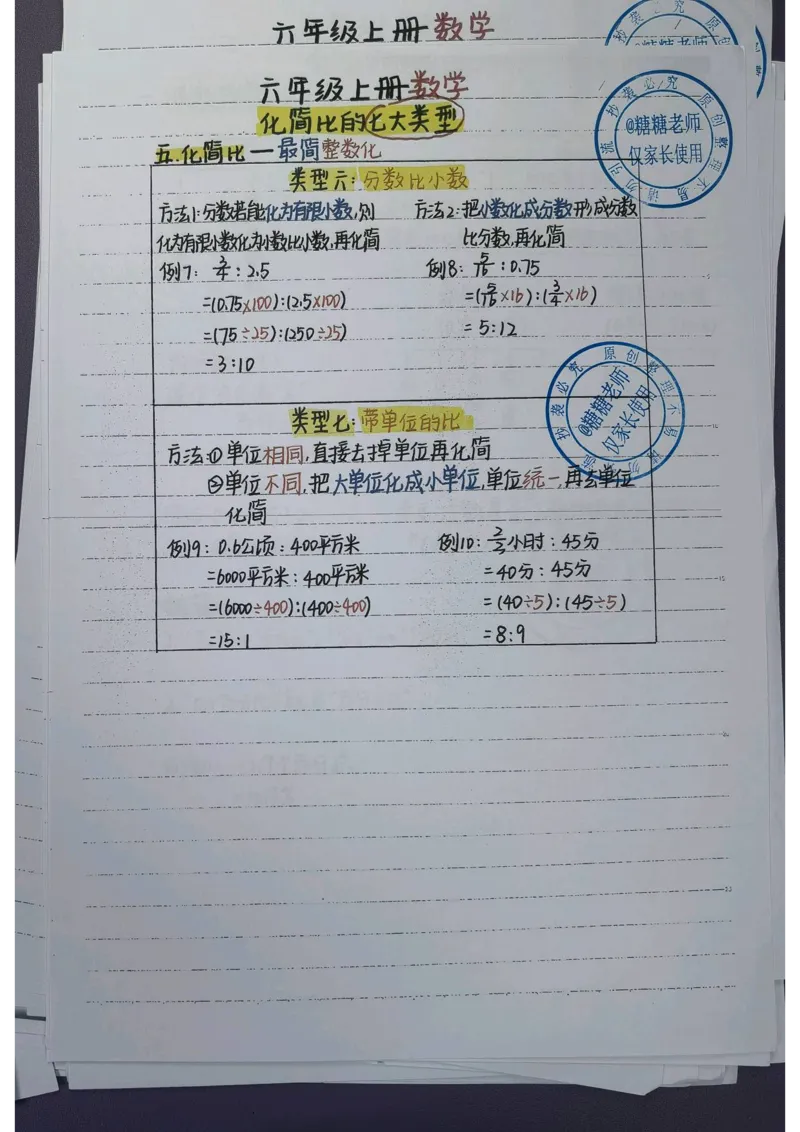 六年级上册数学
六年级上册数学
化简比的七大类型
五.化简比一最简整数化
类型六:分数比小数
方法1:分数若能化为有限小数,则
化为有限小数化为小数比小数,再化简
例7: 3/4 : 2.5
=(0.75×100):(2.5×100)
=(75÷25):(250÷25)
=3:10
方法2:把小数化成分数形成分数
比分数,再化简
例8: 5/16 : 0.75
=(5/16×16):(3/4×16)
=5:12
类型七:带单位的比
方法:①单位相同,直接去掉单位再化简
②单位不同,把大单位化成小单位,单位统一,再去单位
化简
例9: 0.6公顷:400平方米
=6000平方米:400平方米
=(6000÷400):(400÷400)
=15:1
例10: 2/3小时:45分
=40分:45分
=(40÷5):(45÷5)
=8:9
@糖糖老师
仅家长使用
原创整理不易
请勿引流
抄袭必究
@糖糖老师
仅家长使用
原创整理不易
抄袭必究